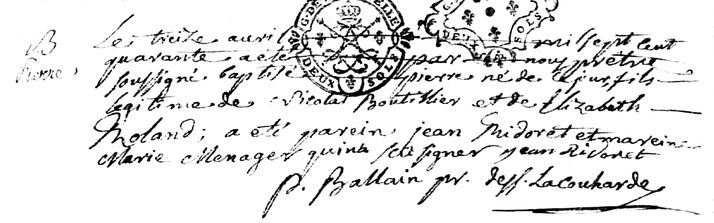 B
pierre
Le treize avril mil sept cent
quarante a eté par nous prêtre
soussigné baptisé pierre né de ce jour fils
légitime de Nicolas Boutillier et de Elizabeth
Roland; a eté parein jean Ridoret et mareine
Marie Menager qui n'a sçû signer jean Ridoret
P. Ballain pr. dess. Lacouharde
DEUX SOLS
DEUX SOLS